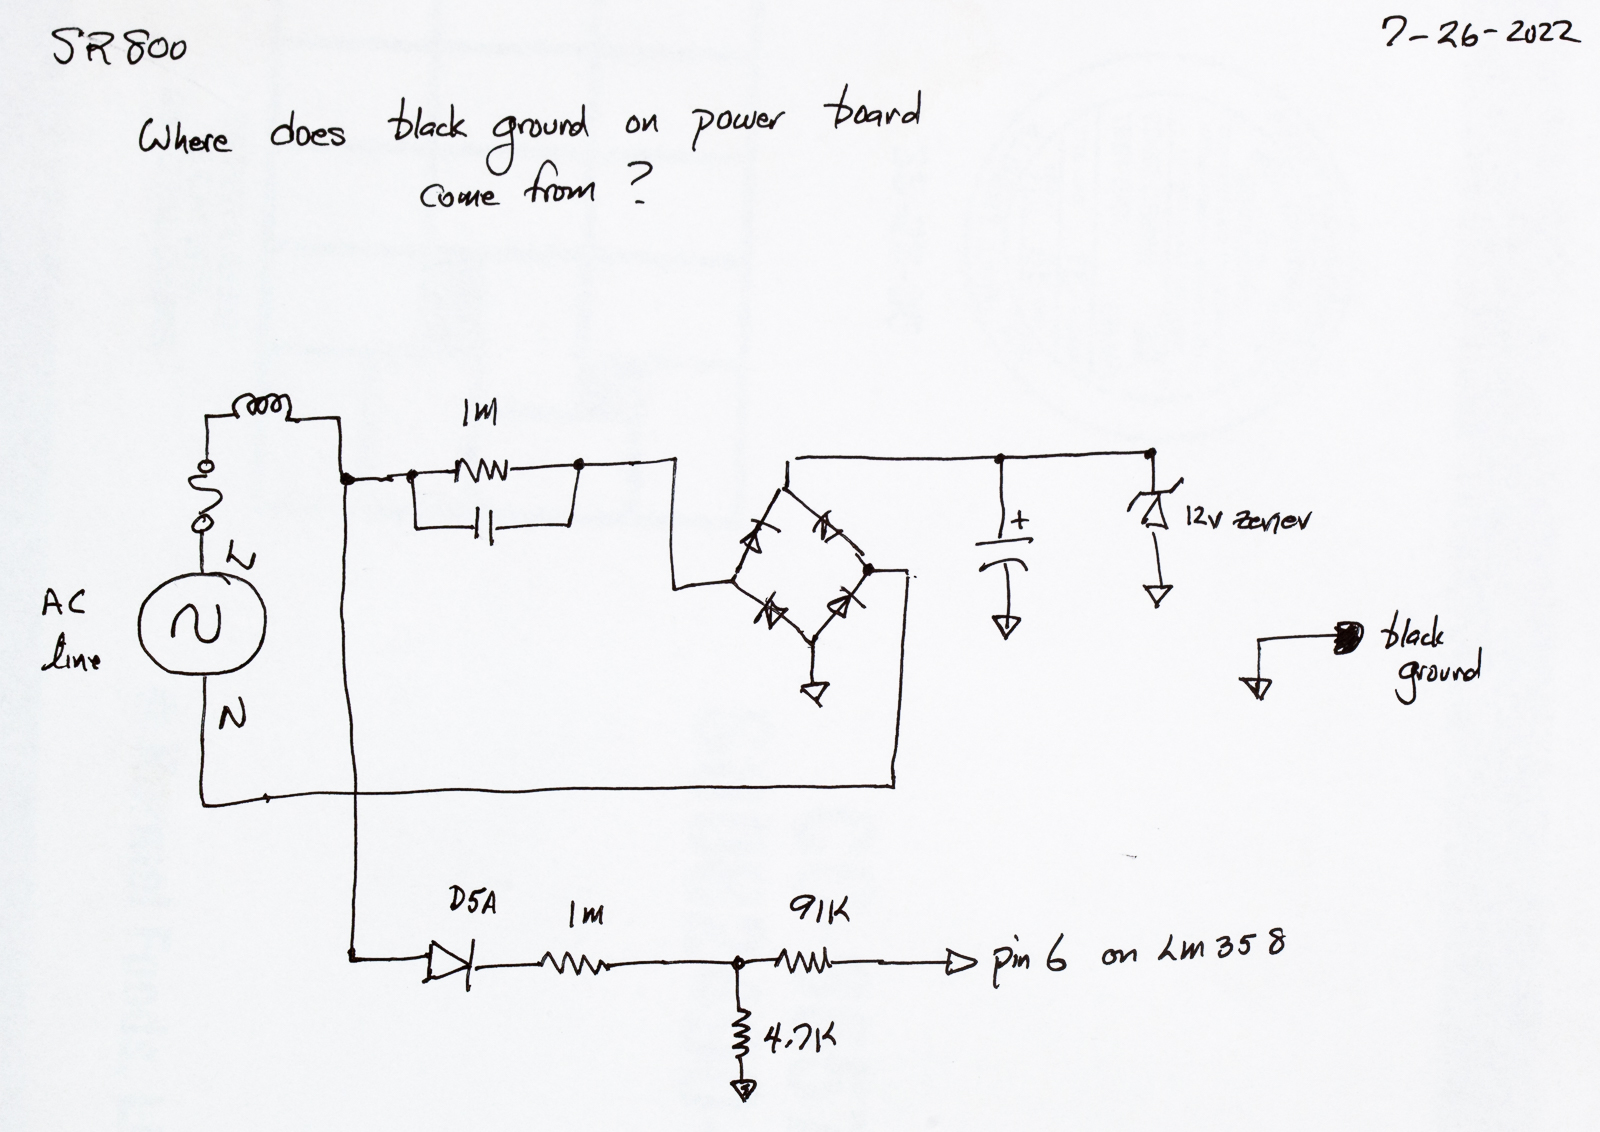 SR800
7-26-2022
Where does black ground on power board
come from?
1M
+
12v zener
L
AC
line
black
ground
N
D5A
1m
91K
pin 6 on Lm358
4.7K